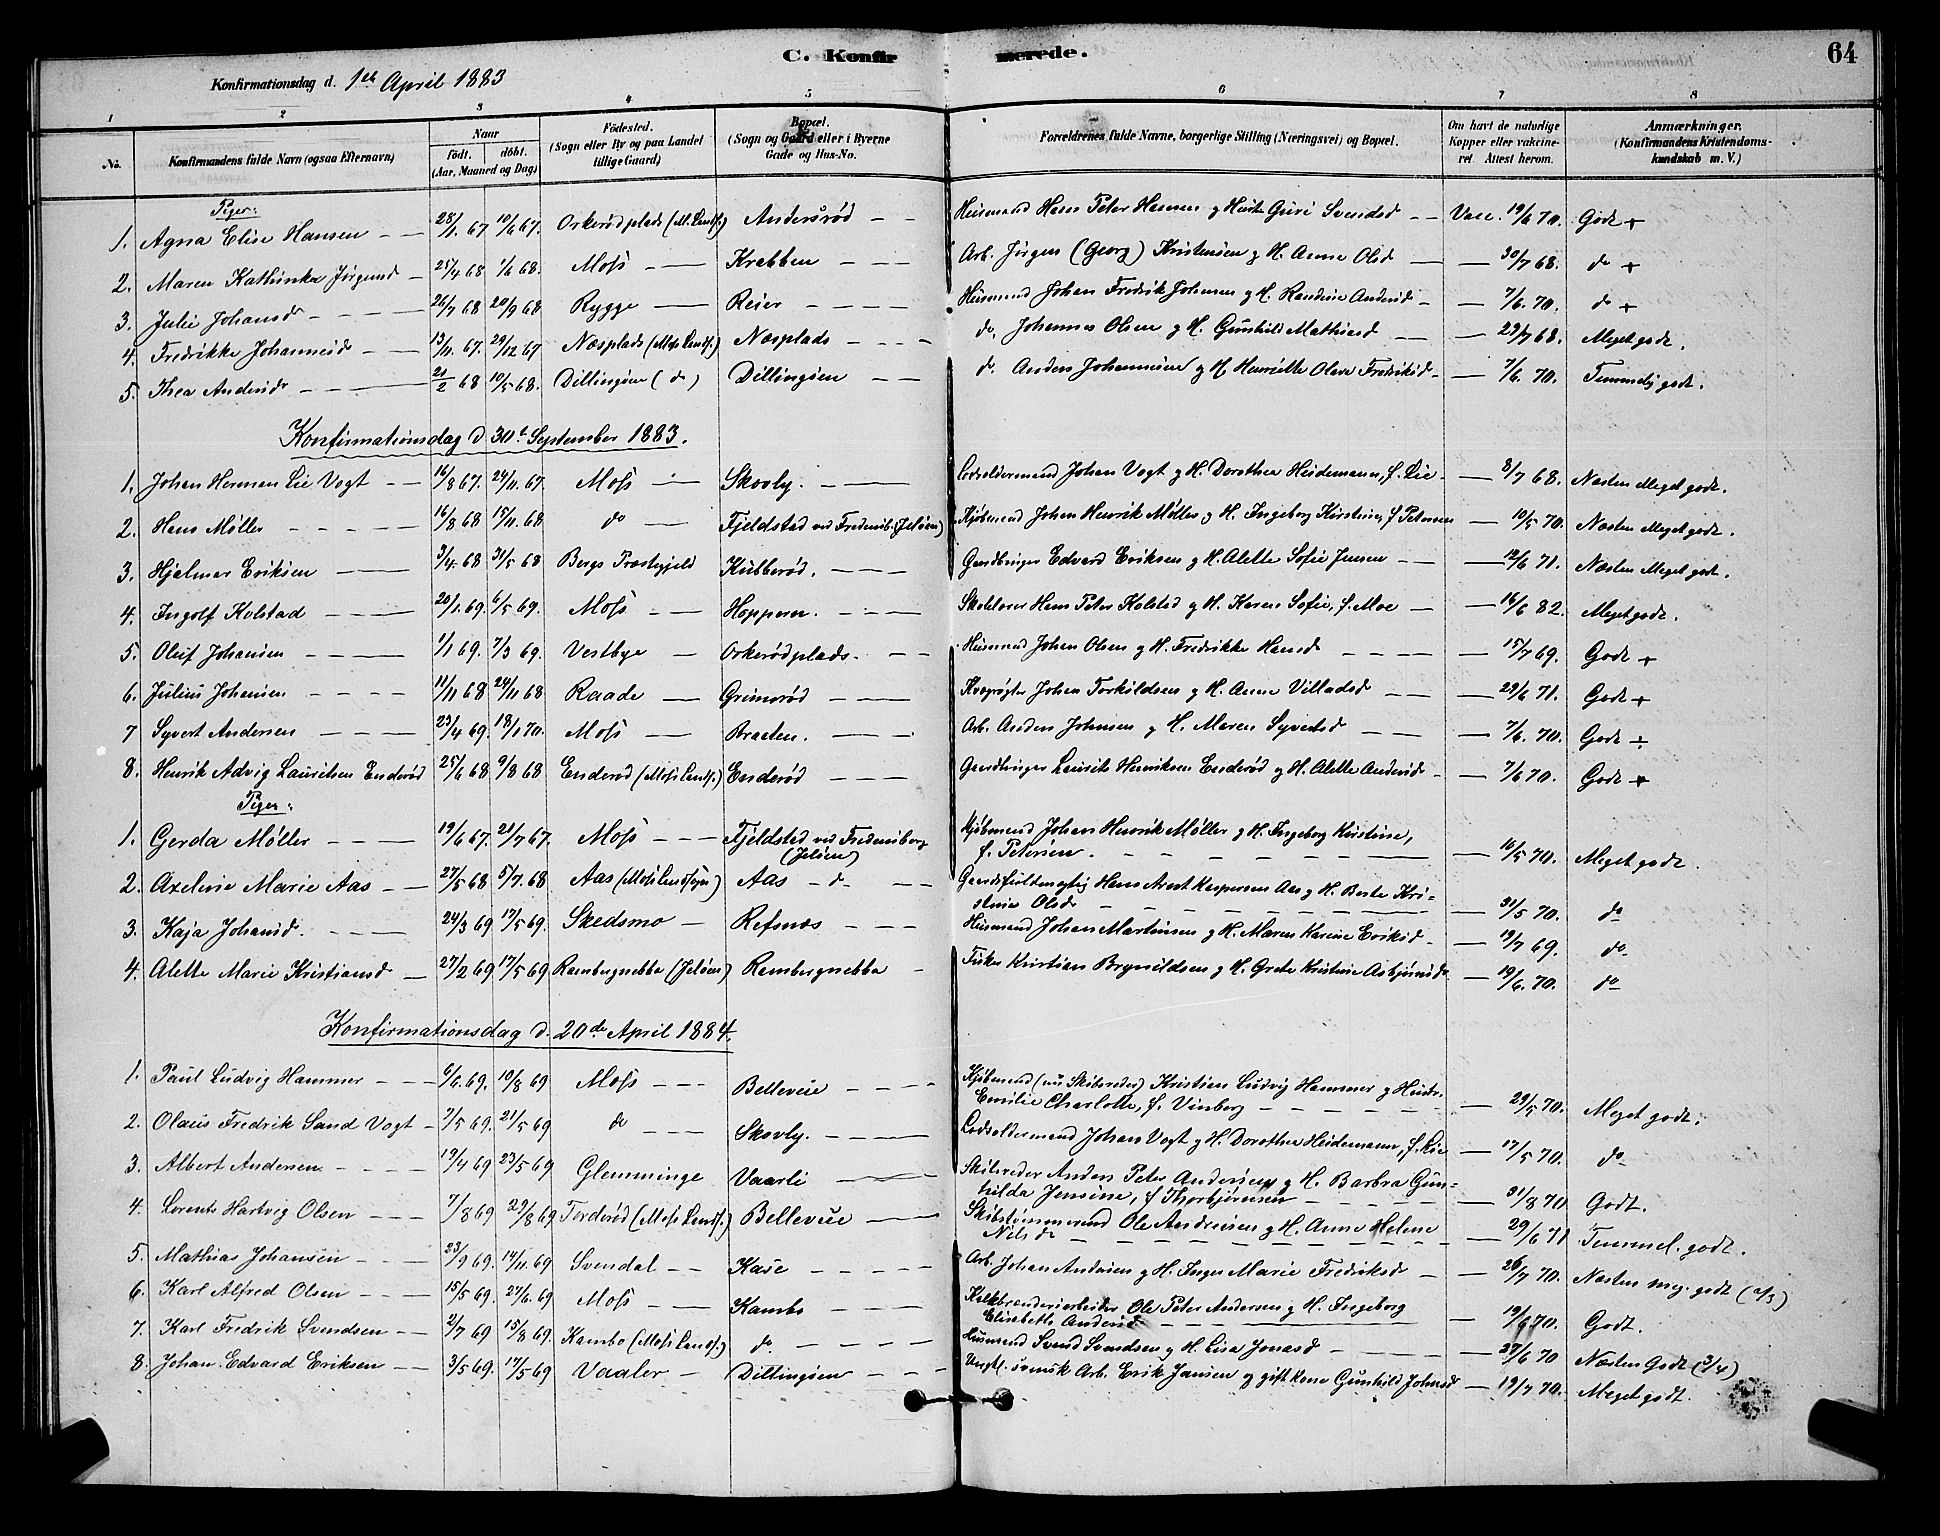 C. Konfirmerede.
64
Konfirmationsdag d. 1ste April 1883
1 2 3 4 5 6 7 8
No. Konfirmandens fulde Navn (ogsaa Efternavn) Naar født. døbt. (Aar, Maaned og Dag) Fødested. (Sogn eller By og paa Landet tillige Gaard) Bopæl. (Sogn og Gaard eller i Byerne Gade og Hus-No. Forældrenes fulde Navne, borgerlige Stilling (Næringsvei) og Bopæl. Om havt de naturlige Kopper eller vaccineret. Attest herom. Anmærkninger. (Konfirmandens Kristendomskundskab m. V.)
Piger:
1. Agna Elise Hansen 28/1 67 10/6 67. Orkerødplads (M. Lands.) Andersrød Husmand Hans Peter Hansen og Hustr Guri Svendsd Vacc. 19/6 70. Godt +
2. Maren Kathinka Jørgensd 25/4 68 1/6 68. Moss Krabben Arb. Jørgen (Georg) Kristensen og H. Anne Olsd 30/7 68. do +
3. Julie Johansd 26/7 68 20/9 68 Rygge Reier Husmand Johan Fredrik Johansen og H. Randine Andersd 7/6. 70. do +
4. Fredrikke Johannesd 13/11. 67. 29/12 67 Næsplads (Moss Lands.) Næsplads do. Johannes Olsen og H. Gunhild Mathiasd 29/7 68. Meget godt.
5. Thea Andersdr 21/2 68 10/5 68. Dillingøen (do) Dillingøen do. Anders Johannesen og H. Henriette Olave Fredriksd 7/6. 70. Temmelig godt.
Konfirmationsdag d 30te September 1883.
1. Johan Herman Lie Vogt 16/8 67. 24/11. 67. Moss Skovly. Lodsoldermand Johan Vogt og H. Dorothea Heidemann, f. Lie 8/7 68. Næsten Meget godt.
2. Hans Møller 16/8 68 15/11. 68 do Fjeldstad ved Fredensb. (Jeløen) Kjøbmand Johan Henrik Møller og H. Ingeborg Kirstine, f. Petersen 10/5 70. Næsten Meget godt.
3. Hjalmar Eriksen 3/4. 68 31/5 68 Bergs Præstegjeld Kubberød. Gaardbruger Edvard Eriksen og H. Alette Sofie Jensen 12/6 71. Næsten Meget godt.
4. Ingolf Kolstad 20/1. 69. 6/5 69. Moss Hoppern. Skolelærer Hans Peter Kolstad og H. Karen Sofie, f. Moe 16/6 82. Meget godt.
5. Oluf Johansen 1/1 69. 7/3 69. Vestbye Orkerødplads. Husmand Johan Olsen og H. Fredrikke Hansd 15/7 69. Godt +
6. Julius Johansen 11/11 68 24/11 68 Raade Grimsrød Kvægrøgter Johan Torkildsen og H. Anne Villadsd 29/6 71. Godt +
7 Syvert Andersen 23/4 69. 18/1 70. Moss Braaten. Arb. Anders Johansen og H. Maren Syvertsd 7/6. 70. Godt +
8. Henrik Advig Lauritsen Enderød 25/6 68 9/8 68 Enderød (Moss Lands.) Enderød Gaardbruger Laurits Henriksen Enderød og H. Alette Andersdr 7/6 70. Godt +
Piger:
1. Gerda Møller 19/6 67. 21/7 67. Moss Fjeldstad ved Fredensborg (Jeløen) Kjøbmand Johan Henrik Møller og H. Ingeborg Kirstine,
f. Petersen. 10/5 70. Meget godt.
2. Axeline Marie Aas 27/5 68 5/7. 68 Aas (Moss Landsogn) Aas do Hans Arnt Kaspersen Aas og H. Berte Kri-
stine Olsdr 31/5 70. do
3. Kaja Johansd. 24/3 69 17/5 69. Skedsmo Refsnæs Husmand Johan Martinsen og H. Maren Karine Eriksd 19/7 69. do
4. Alette Marie Kristiansd 27/2 69 17/5 69 Rambergnebba (Jeløen) Rambergnebba Fisker Kristian Brynildsen og H. Grete Kristine Asbjørnsdr 19/6. 70. do
Konfirmationsdag d. 20de April 1884.
1. Paul Ludvig Hammer 6/6. 69. 10/8 69 Moss Bellevue Kjøbmand (nu Skibsreder) Kristian Ludvig Hammer og Hustr.
Emilie Charlotte, f. Vinberg 29/5 70. Meget godt.
2. Olaus Fredrik Sand Vogt 7/5 69. 21/5 69 do Skovly. Lodsoldermand Johan Vogt og H. Dorothea Heidemann, f. Lie 17/5 70. do
3. Albert Andersen 19/4 69 23/5 69 Glemminge Vaarli Skibsreder Anders Peter Andersen og H. Barbra Gun-
hilda Jensine, f Thorbjørnsen 31/8 70 Godt.
4. Lorents Hartvig Olsen 7/8 69 22/8 69 Torderød (Moss Lands.) Bellevue Skibstømmermand Ole Andresen og H. Anne Helene
Nilsdr 29/6 71 Temmel. godt.
5. Mathias Johansen 23/9 69. 14/11. 69 Svendal Kase Arb. Johan Andersen og H. Inger Marie Fredriksdr 26/7 70. Næsten meg. godt (2/3)
6. Karl Alfred Olsen 15/5 69. 27/6. 69 Moss Kambo Kalkbrænderiarbeider Ole Peter Andersen og H. Ingeborg
Elisabeth Andersd 19/6 70. Godt.
7. Karl Fredrik Svendsen 2/7 69 15/8 69. Kambo (Moss Lands.) do. Husmand Svend Svendsen og H. Lisa Jonasd 27/6 70 Næsten Godt (3/4)
8. Johan Edvard Eriksen 3/5 69. 17/5 69 Vaaler Dillingøen Ungk. svensk Arb. Erik Jansen og gift Kone Gunhild Johnsd 19/7 70. Meget godt.